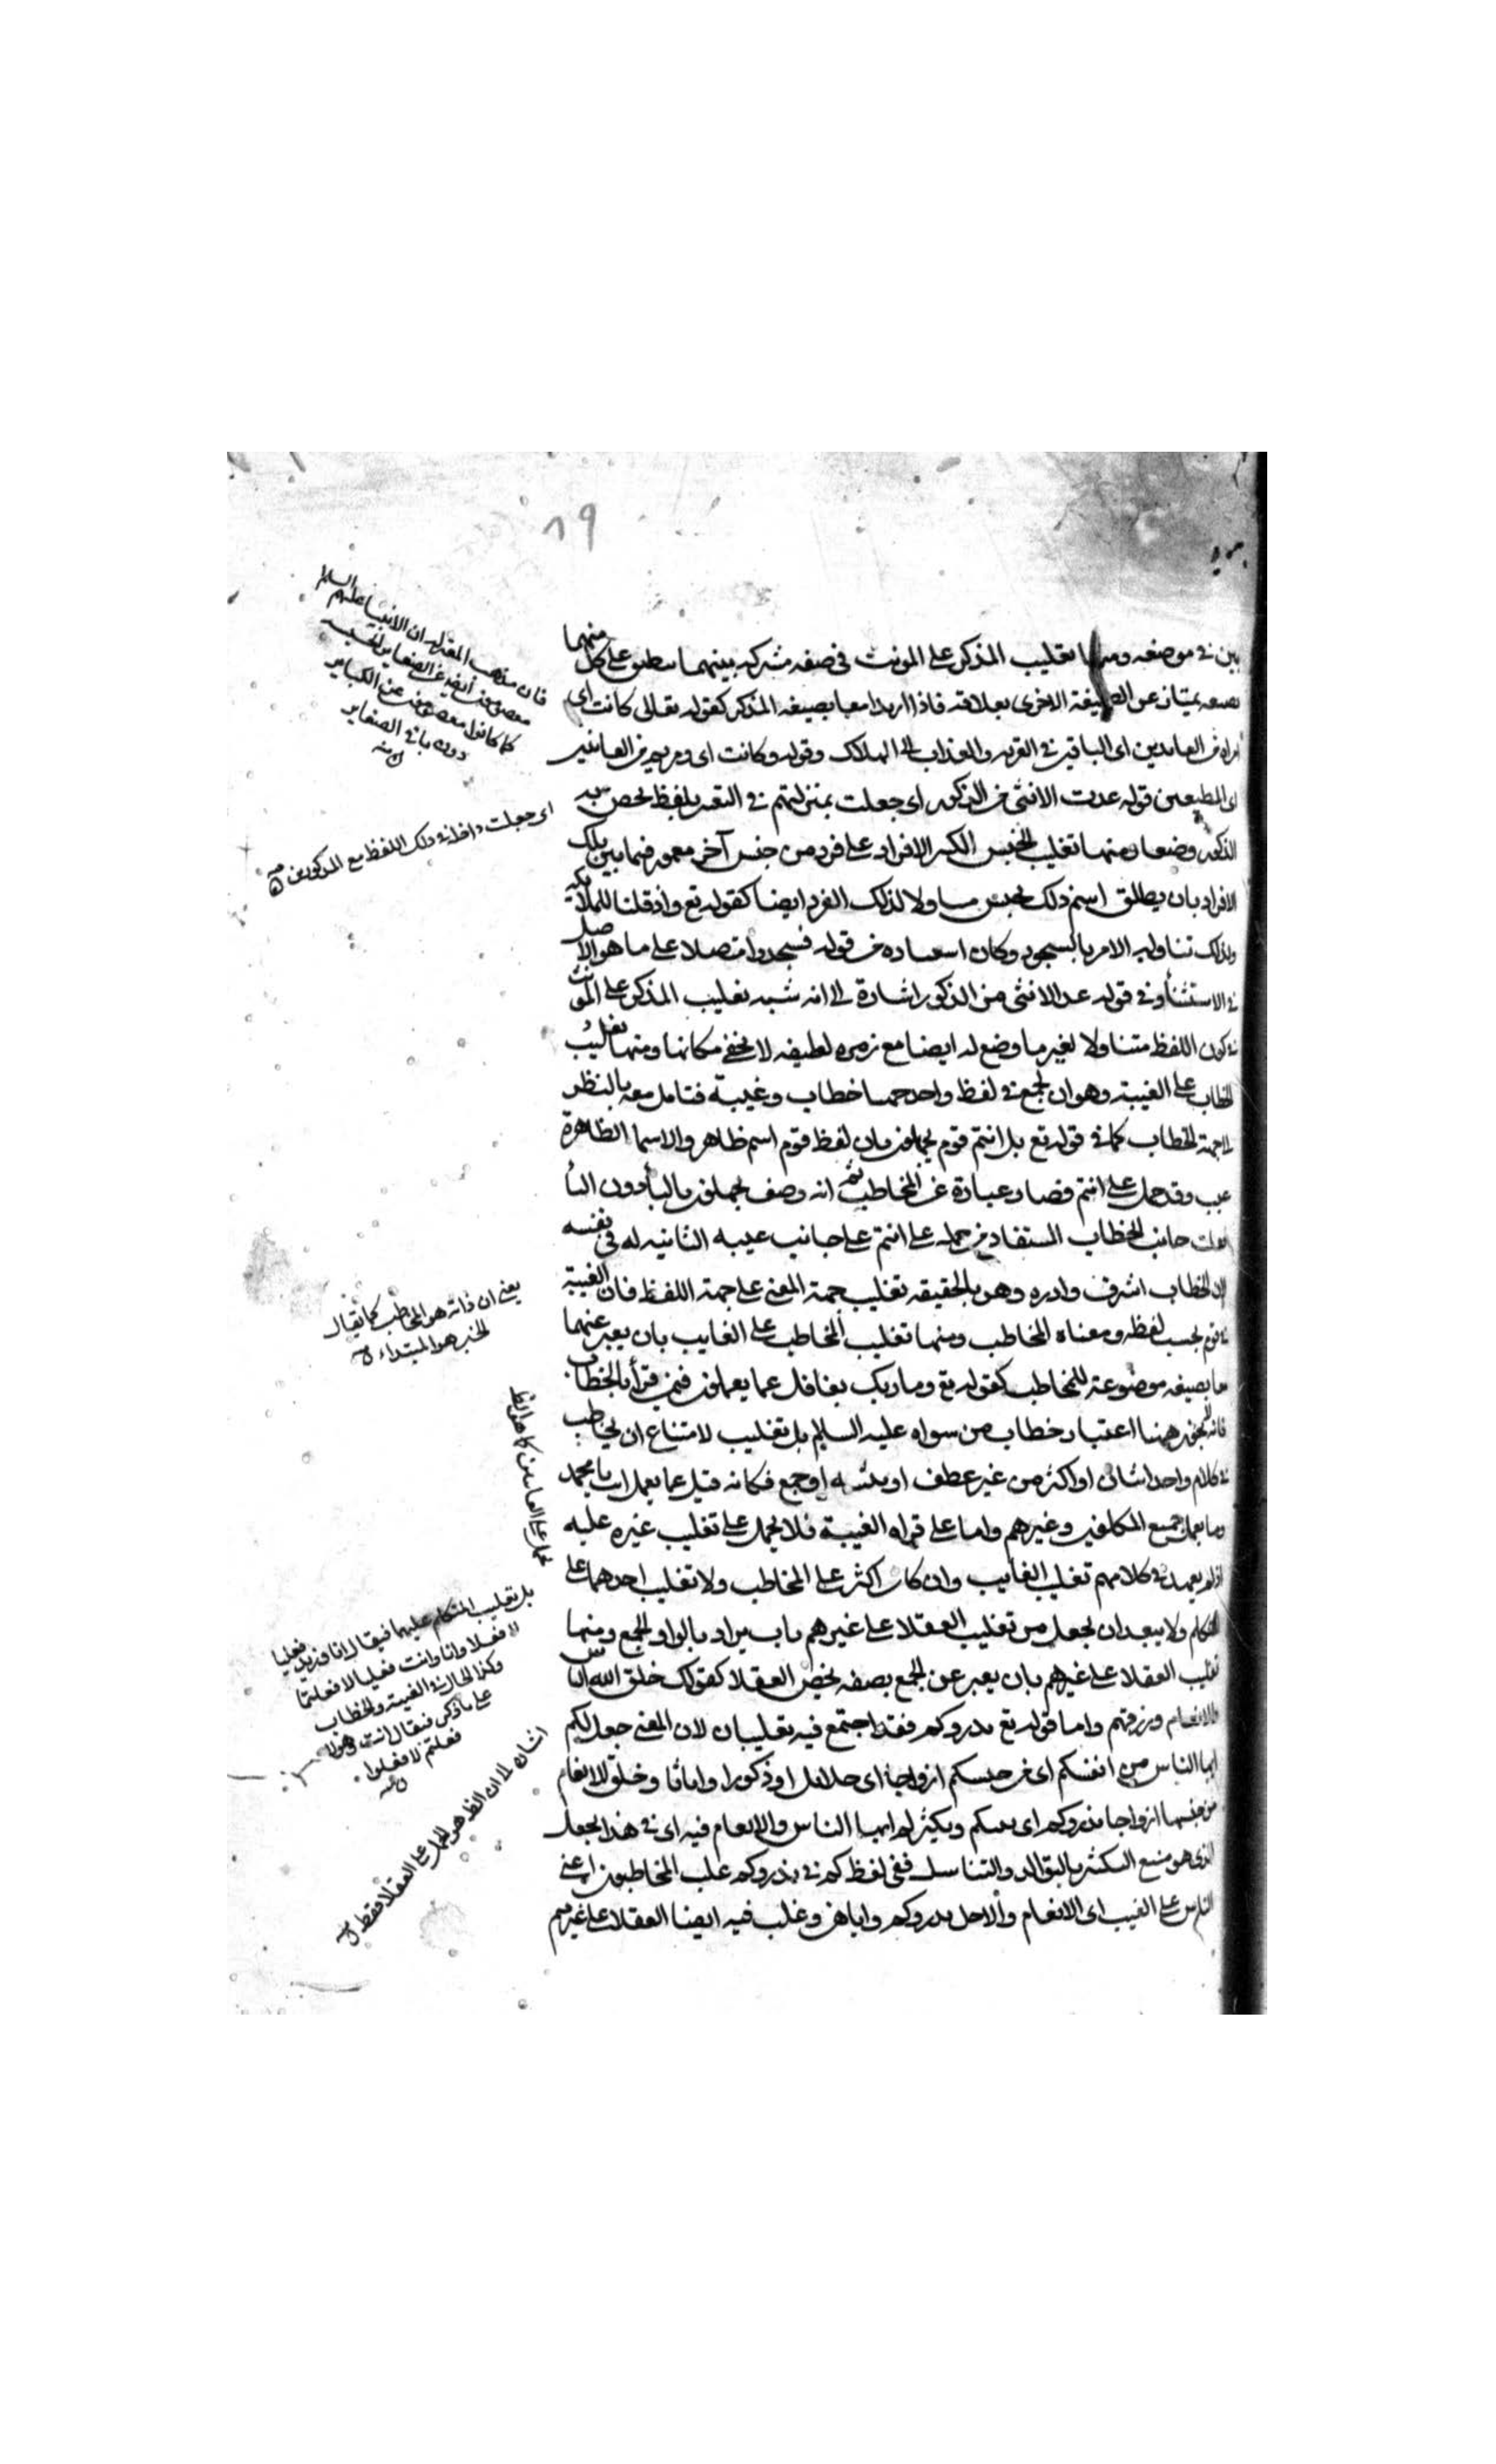 ٨٩
بين في موضعه ومنها تغليب المذكر على المونث في صفه مشتركه بينهما يطلق على كل منهما
بصيغه يمتاز عن الصيغة الاخرى بعلاقة فاذا اريدا معا بصيغه المذكر كقوله تعالى كانت اى
امراه من الغابرين اى الباقين في القريه والعذاب الى الهلاك وقوله وكانت اى مريم من القانتين
اى المطيعين قوله عدت الانثى من الذكور اى جعلت بمنزلتهم في التعبير بلفظ يخص به
الذكور وضعا ومنها تغليب الجنس الكثير الافراد على فرد من جنس آخر مغمور فيما بين تلك
الافراد بان يطلق اسم ذلك الجنس متناولا لذلك الفرد ايضا كقوله تع واذ قلنا للملائكه
ولذلك تناوله الامر بالسجود وكان استثناؤه من قوله فسجدوا متصلا على ما هو الاصل
في الاستثناء وفي قوله عد الانثى من الذكور اشارة الى انه شبه تغليب المذكر على المونث
في كون اللفظ متناولا لغير ما وضع له ايضا مع زمره لطيفه لا يخفى مكانها ومنها تغليب
الخطاب على الغيبة وهو ان يجمع في لفظ واحد جهتا خطاب وغيبة فتامل معه بالنظر
الى جهة الخطاب كما في قوله تع بل انتم قوم تجهلون فان لفظ قوم اسم ظاهر والاسما الظاهرة
غيب وقد حمل على انتم فصار عبارة عن المخاطب ثم انه وصف بجهلون بالتا دون اليا
تغليبا لجانب الخطاب المستفاد من حمله على انتم على جانب غيبه الثابته له في نفسه
لان الخطاب اشرف وادره وهو بالحقيقه تغليب جهة المعنى على جهة اللفظ فان الغيبة
في قوم بحسب لفظه ومعناه للمخاطب ومنها تغليب المخاطب على الغايب بان يعبر عنهما
معا بصيغه موضوعة للمخاطب كقوله تع وما ربك بغافل عما تعملون فيمن قرأ بالخطاب
فانه لا يجوز ههنا اعتبار خطاب من سواه عليه السلام بلا تغليب لامتناع ان يخاطب
في كلام واحد اثنان او اكثر من غير عطف او تثنيه او جمع فكانه قيل عما تعمل انت يا محمد
وما يعمل جميع المكلفين وغيرهم واما على قراه الغيبة فلا يحمل على تغليب غيره عليه
اذ لم يعهد في كلامهم تغليب الغايب وان كان اكثر على المخاطب ولا تغليب احدهما على
المتكلم ولا يبعد ان يجعل من تغليب العقلا على غيرهم باب يراد بالواو الجمع ومنها
تغليب العقلا على غيرهم بان يعبر عن الجمع بصفه تخص العقلا كقولك خلق الله الناس
والانعام ورزقهم واما قوله تع يذروكم فقد اجتمع فيه تغليبان لان المعنى جعل لكم
ايها الناس من انفسكم اى من جنسكم ازواجا اى حلائل او ذكورا واناثا وخلق للانعام
من جنسها ازواجا يذروكم اى يبثكم ويكثركم ايها الناس والانعام فيه اى في هذا الجعل
الذى هو منبع التكثير بالتوالد والتناسل ففي لفظ كم في يذروكم غلب المخاطبون اعنى
الناس على الغيب اى الانعام والاصل يذروكم واياهن وغلب فيه ايضا العقلا على غيرهم
فان مذهب المعتزله ان الانبيا عليهم السلام
معصومون ايضا عن الصغاير
كما كانوا معصومين عن الكباير
دون باقي الصغاير
منه
اى جعلت داخله في ذلك اللفظ مع المذكورين
يعنى ان ذاته هو المخاطب كما يقال
الخبر هو المبتداء
بل تغليب المتكلم عليهما فيقال انا وزيد فعلنا
لا فعلا وانا وانت فعلنا لا فعلتما
وكذا الحال في الغيبة والخطاب
على ما ذكر فيقال انت وهؤلاء
فعلتم لا فعلوا
اشاره الى ان الظاهر الحمل على العقلا فقط